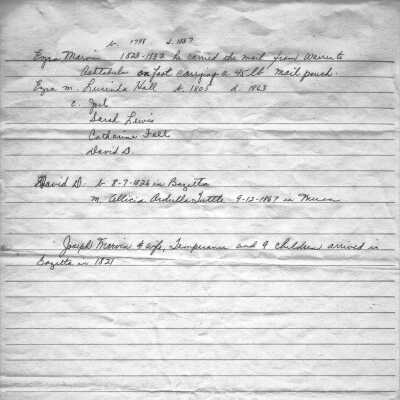 b. 1798 d. 1887
Ezra Marvin 1823-1832 he carried the mail from Warren to
Ashtabula on foot carrying a 45 lb mail pouch.
Ezra m. Lucinda Hall b. 1805 d. 1863
c. Joel
Sarah Lewis
Catharine Fell
David D.
David D. b 8-9-1826 in Bazetta
m. Allicia Ardulla Tuttle 9-12-1867 in Mecca
Joseph Marvin & wife, Temperance and 9 children arrived in
Bazetta in 1821